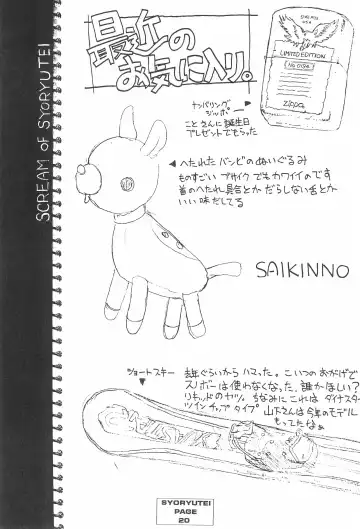 SCREAM OF SYORYUTEI
最近の
お気に入り。
SINCE 1932
LIMITED EDITION
No 0194
Zippo
ナンバリング
ジッポー
ことさんに誕生日
プレゼントでもらった
へたれたバンビのぬいぐるみ
ものすごいブサイクでもカワイイのです
首のへたれ具合とかだらしない舌とか
いい味だしてる
SAIKINNO
ショートスキー
去年ぐらいからハマった。こいつのおかげで
スノボーは使わなくなった。誰かほしい?
リキッドのヤツ。ちなみにこれはダイナスター
ツインチップタイプ 山下さんは今年のモデル
もってたなぁ
SYORYUTEI
PAGE
20